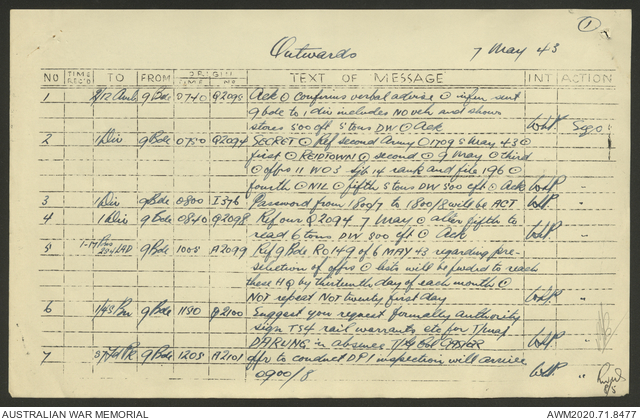 1
Outwards 7 May 43
NO TIME REC'D TO FROM ORIGIN TIME NO. TEXT OF MESSAGE INT ACTION
1 2/12 Amb 9 Bde 0740 Q2095 Ack ⊙ Confirms verbal advise ⊙ infm sent
9 Bde to 1 Div includes NO veh and shows
stores 500 cft 5 tons DW ⊙ Ack Sigs
2 1 Div 9 Bde 0750 Q2094 SECRET ⊙ Ref second Army ⊙ 1709 5 May 43 ⊙
first ⊙ REIDTOWN ⊙ second ⊙ 9 May ⊙ third
⊙ offrs 11 WOS sjts 14 rank and file 196 ⊙
fourth ⊙ NIL ⊙ fifth 5 tons DW 500 cft ⊙ Ack "
3 1 Div 9 Bde 0800 I576 Password from 1800/7 to 1800/8 will be ACT "
4 1 Div 9 Bde 0840 Q2098 Ref our Q2094 7 May ⊙ alter fifth to
read 6 tons DW 500 cft ⊙ Ack "
5 LAD 9 Bde 1005 A2099 Ref 9 Bde RO 149 of 6 MAY 43 regarding pre-
selection of offrs ⊙ lists will be fwded to reach
these HQ by thirteenth day of each month ⊙
NOT repeat NOT twenty first day "
6 1/45 Bn 9 Bde 1150 A2100 Suggest you request formally authority
sign TS4 rail warrants etc for
DARLING in absence
7 9 Bde 1205 A2101 offr to conduct DP1 inspection will arrive
0900/8 "
AUSTRALIAN WAR MEMORIAL AWM2020.71.8477